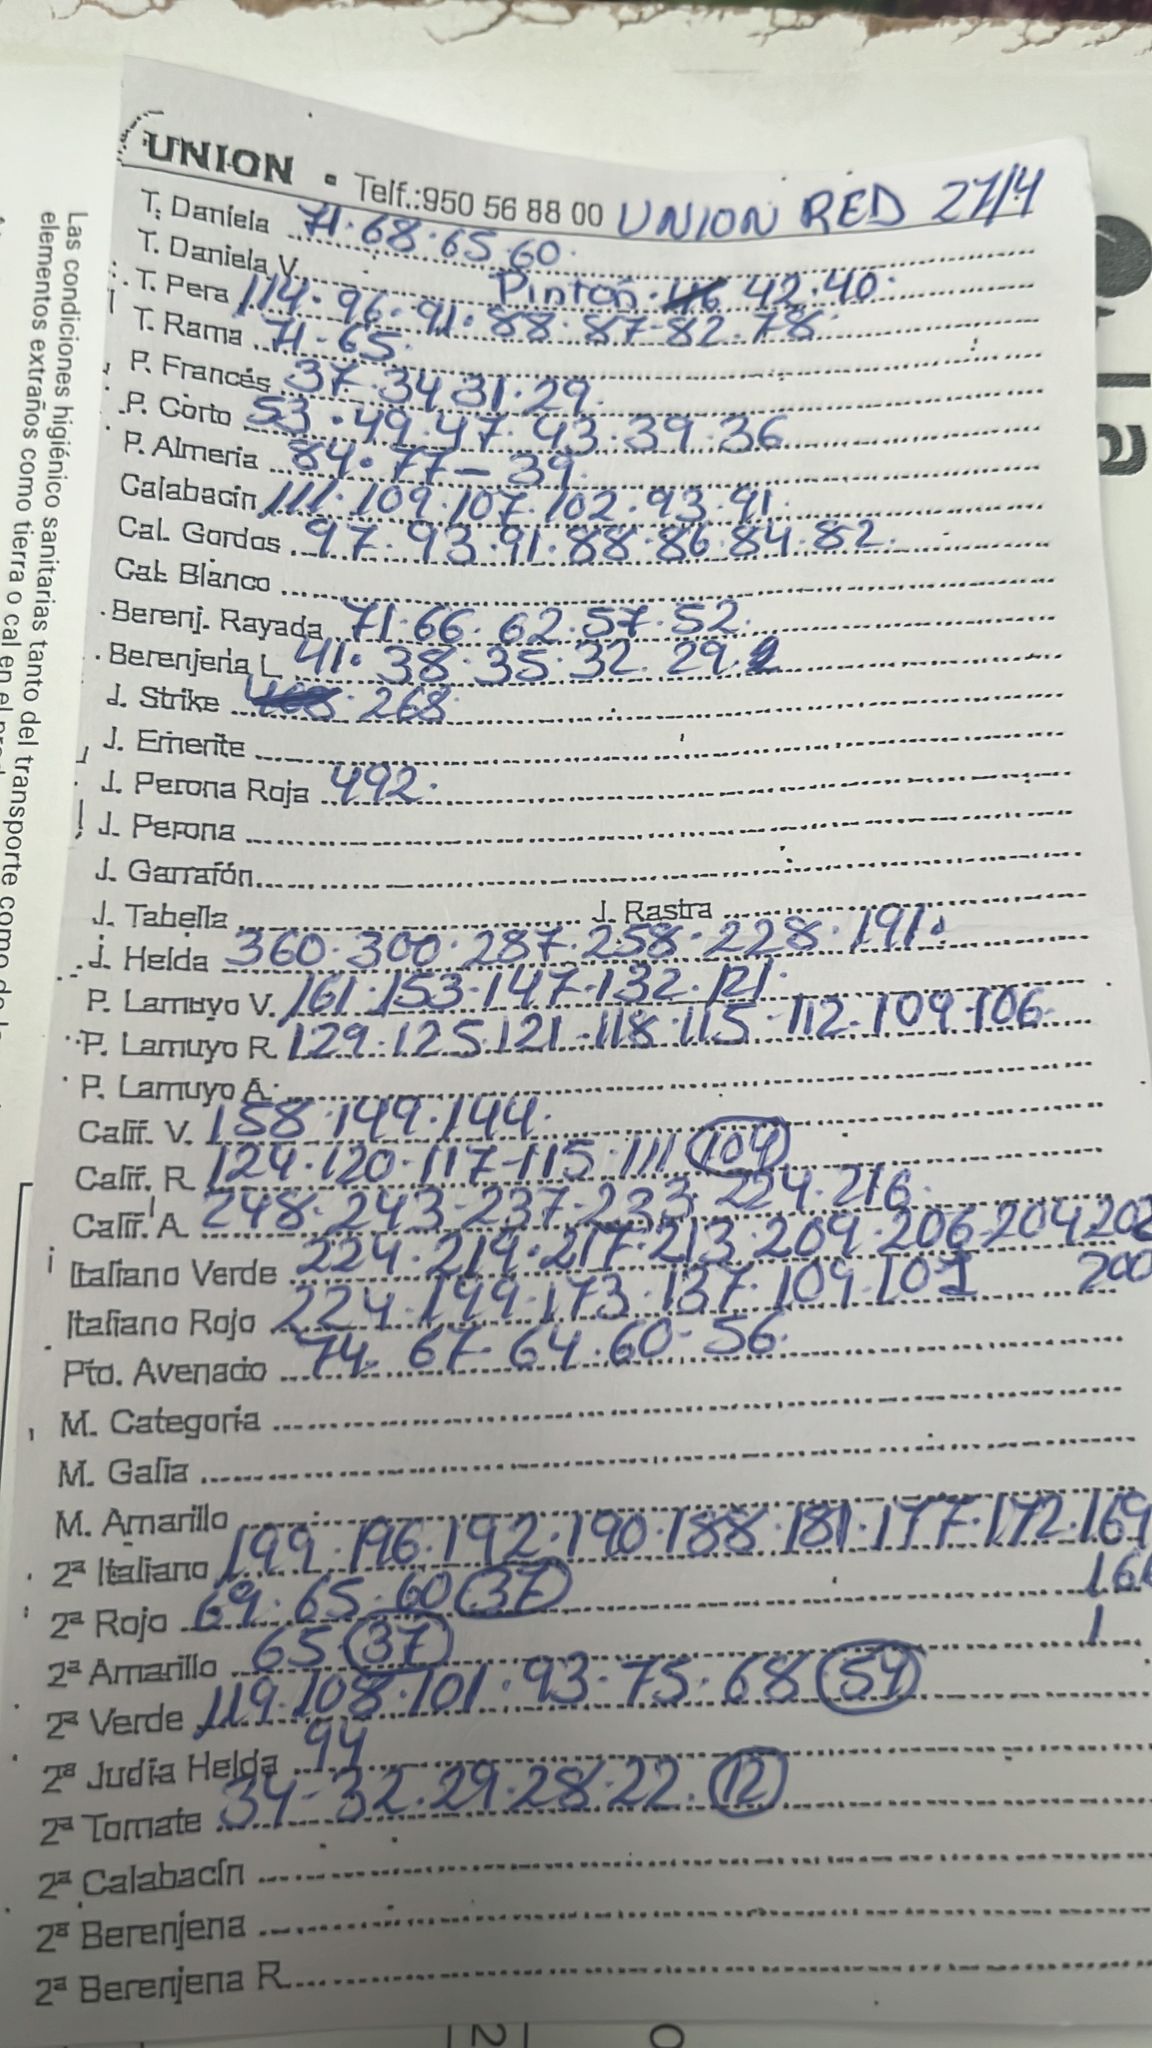 UNION • Telf.:950 56 88 00 UNION RED 27/4
T. Daniela 71.68.65 60.
T. Daniela V. Pinton 42.40.
T. Pera 114.96.91.88.87-82.78.
T. Rama 71-65.
P. Francés 37.34 31.29.
P. Corto 53.49.47.43.39.36
P. Almeria 84.77-39.
Calabacin 111.109.107.102.93.91.
Cal. Gordos 97.93.91.88.86.84.82.
Cal. Blanco
Berenj. Rayada 71.66.62.57.52.
Berenjena L 41.38.35.32.29.
J. Strike 268
J. Emerite
J. Perona Roja 492.
J. Perona
J. Garrafón
J. Tabella J. Rastra
J. Helda 360.300.287.258.228.191.
P. Lamuyo V. 161.153-147-132.121.
P. Lamuyo R 129.125.121-118.115-112.109.106
P. Lamuyo A.
Calif. V. 158.149.144.
Calif. R 124.120-117-115.111 104
Calif. A 248.243-237-233.224.216.
Italiano Verde 224.219.217.213.209.206.204 202
200
Italiano Rojo 224.199.173.137.109.101
Pto. Avenado 74.67.64.60-56.
M. Categoria
M. Galia
M. Amarillo
2ª Italiano 199.196.192.190.188.181.177.172.169
2ª Rojo 69.65.60 37
2ª Amarillo 65 37
2ª Verde 119.108.101.93.75.68 59
2ª Judia Helda 94
2ª Tomate 34-32.29.28.22. 12
2ª Calabacín
2ª Berenjena
2ª Berenjena R
Las condiciones higiénico sanitarias tanto del transporte como
elementos extraños como tierra o cal en el